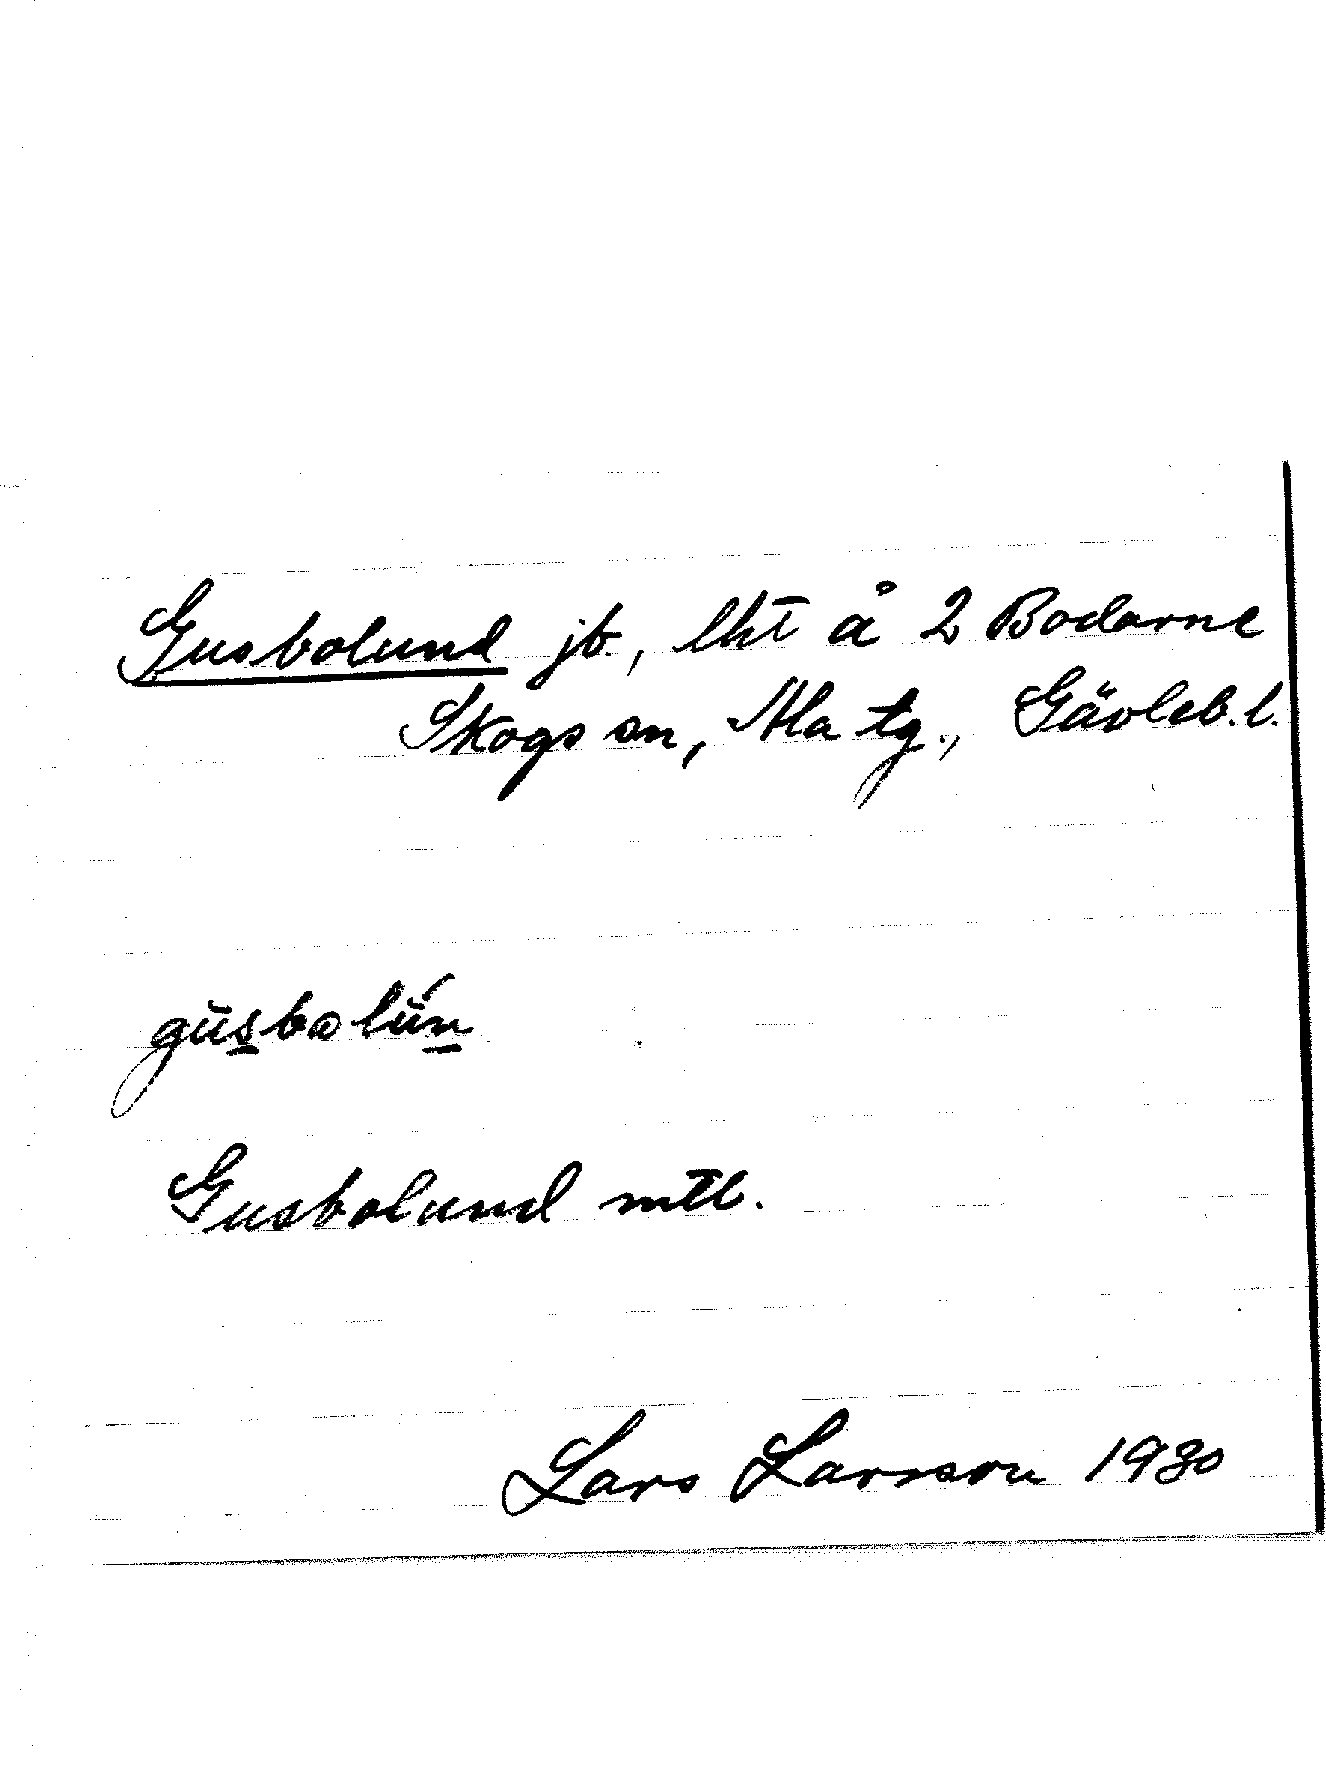 Gusbolund jb, lht å 2 Bodarne
Skogs sn, Ala tg., Gävleb. l.
gu̇s̲bωlu̇́n̲
Gusbolund mtl.
Lars Larsson 1930